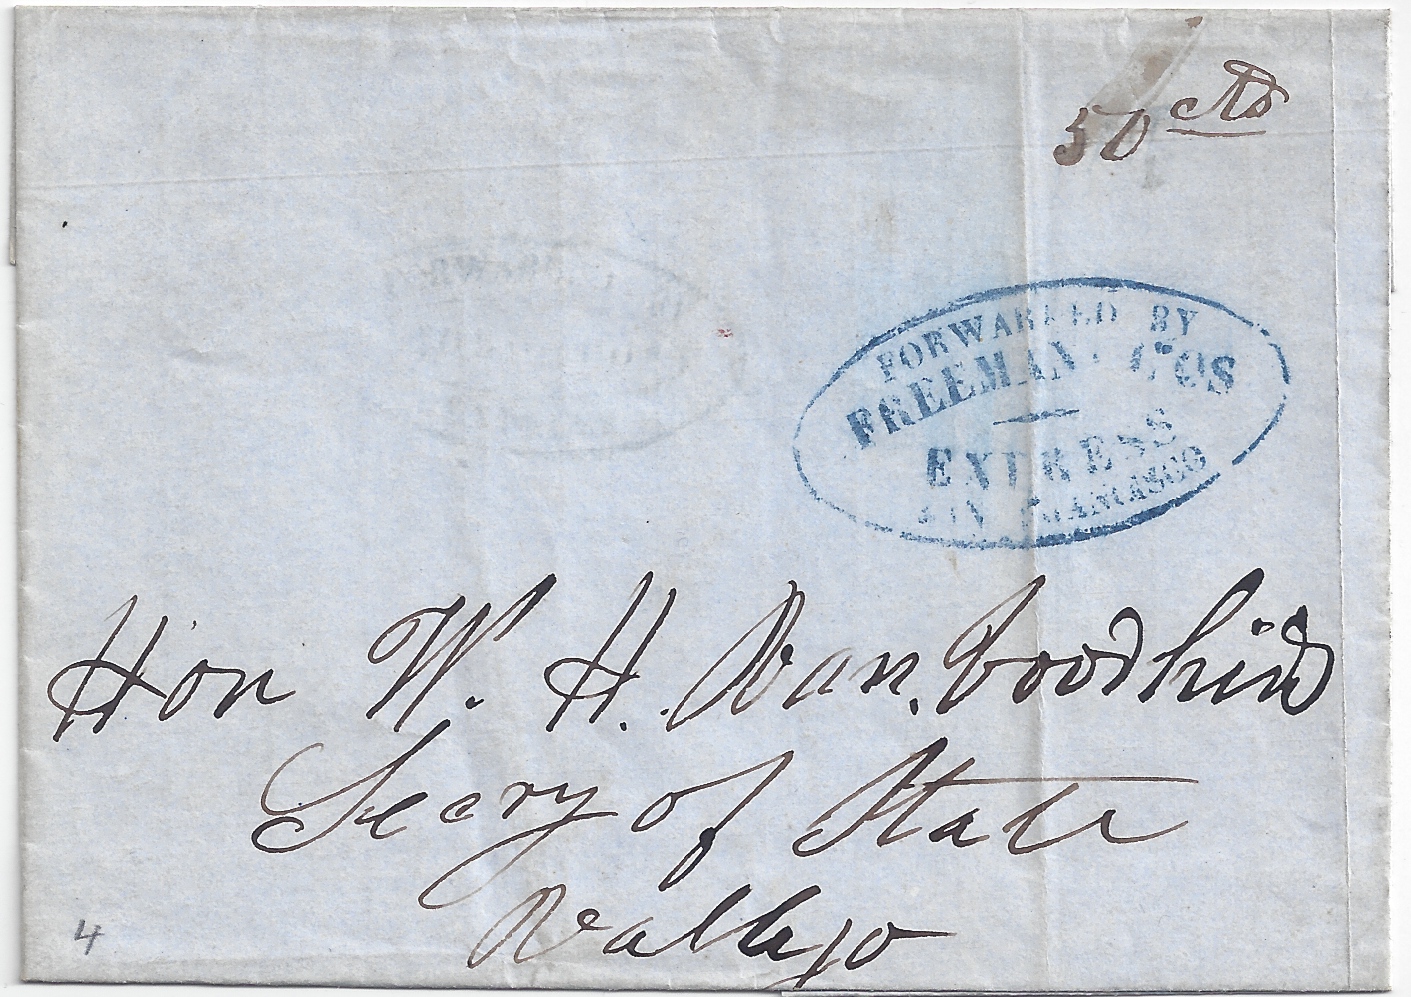 50 cts
FORWARDED BY
FREEMAN & COS
EXPRESS
SAN FRANCISCO
Hon W. H. Van. Voorhies
Secry of State
Vallejo
4